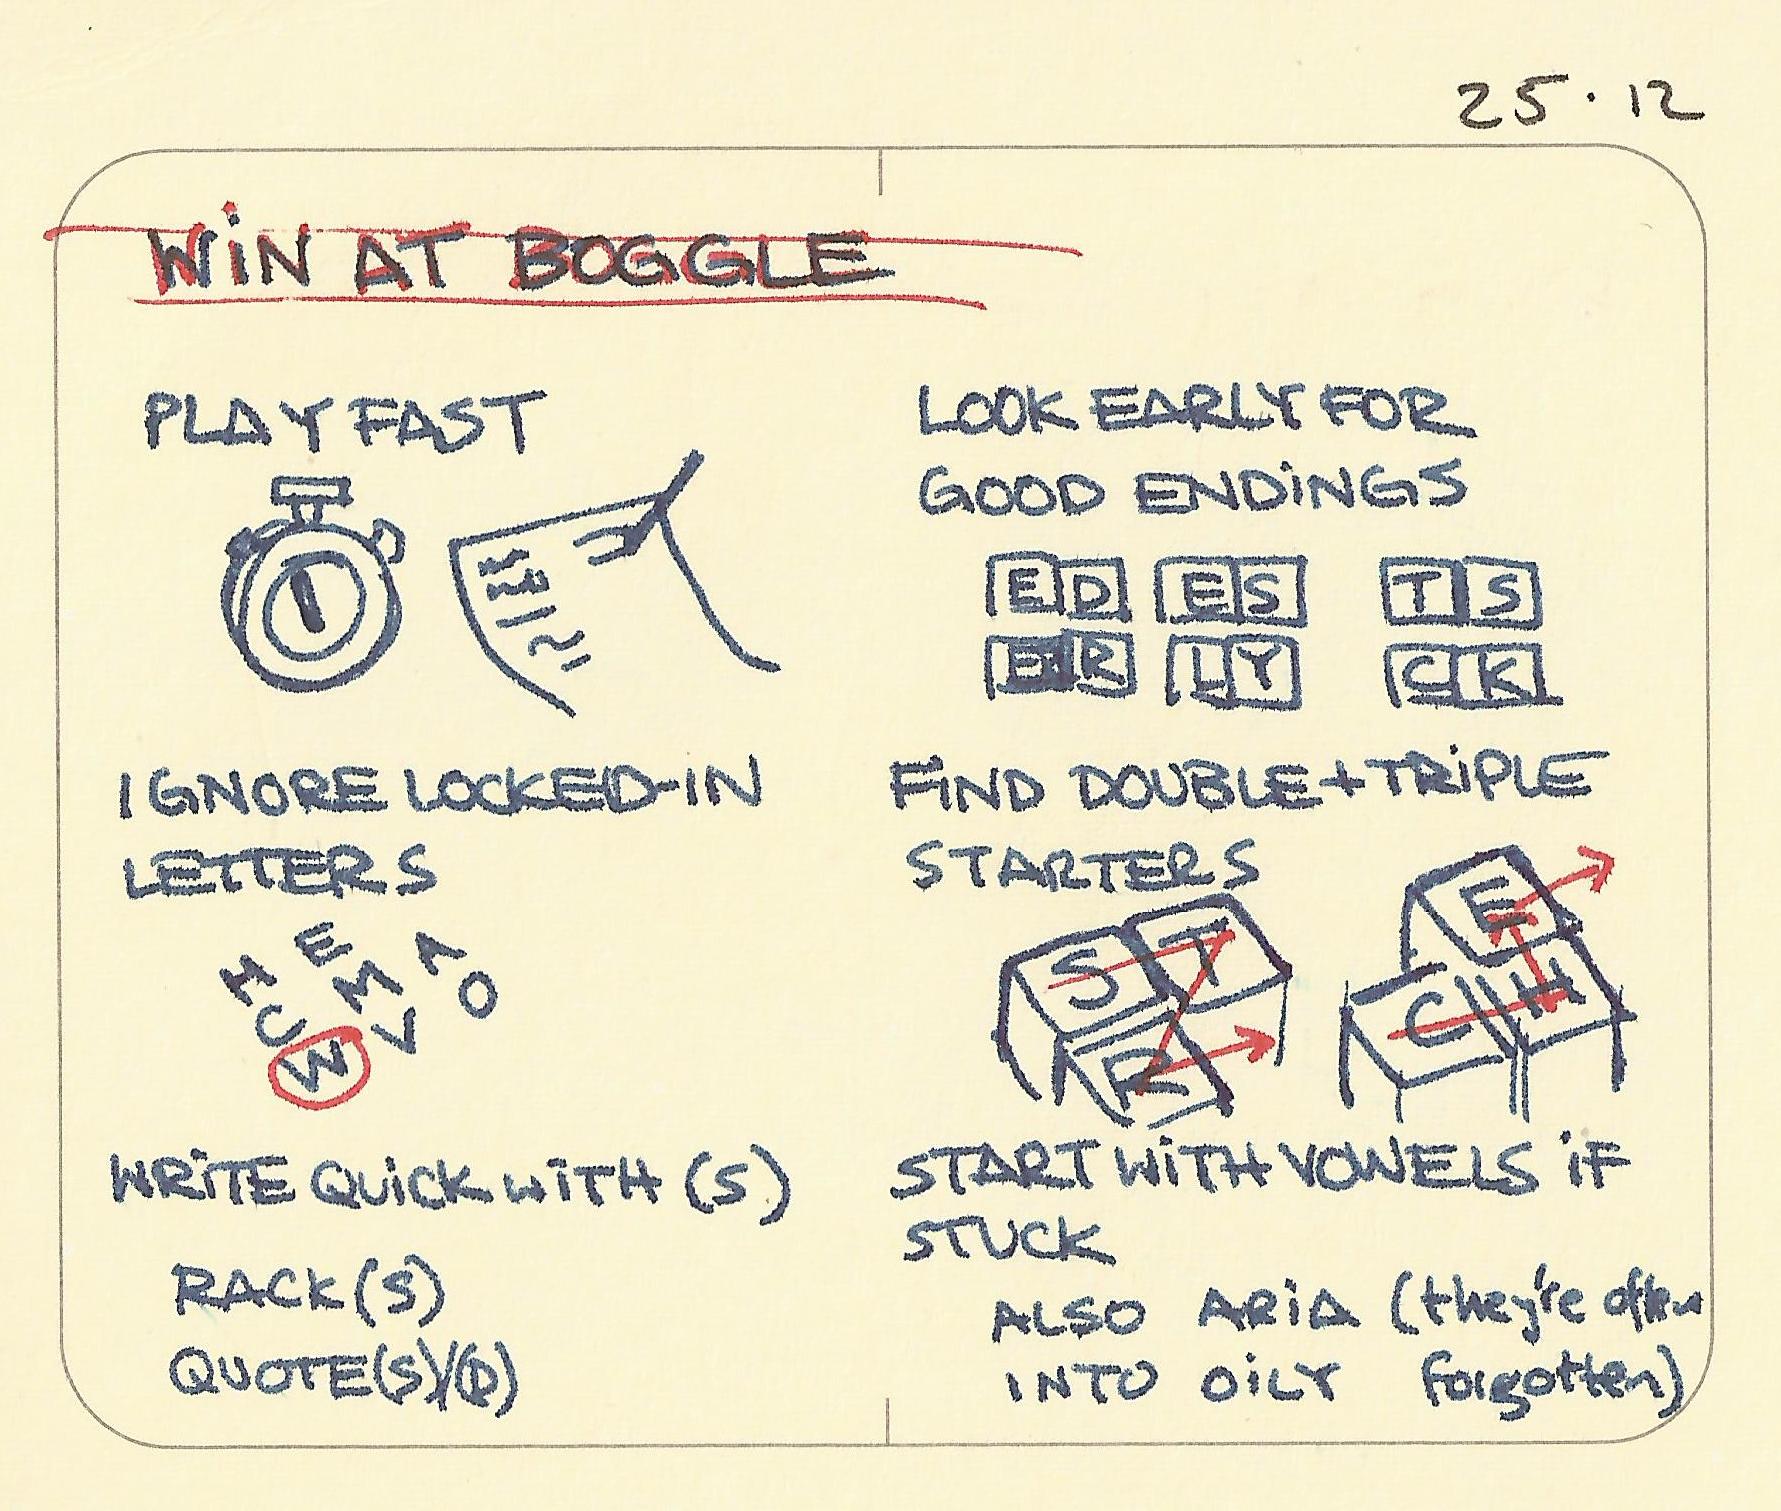 25.12
WiN AT BOGGLE
PLAY FAST
LOOK EARLY FOR
GOOD ENDiNGS
ED ES TS
ER LY CK
IGNORE LOCKED-IN
LETTERS
H E M A O
C W V
FiND DOUBLE+TRiPLE
STARTERS
S T R
C H E
WRiTE QUiCK WiTH (S)
RACK(S)
QUOTE(S)/(D)
START WiTH VOWELS iF
STUCK
ALSO ARiA (they're often
INTO OiLY forgotten)